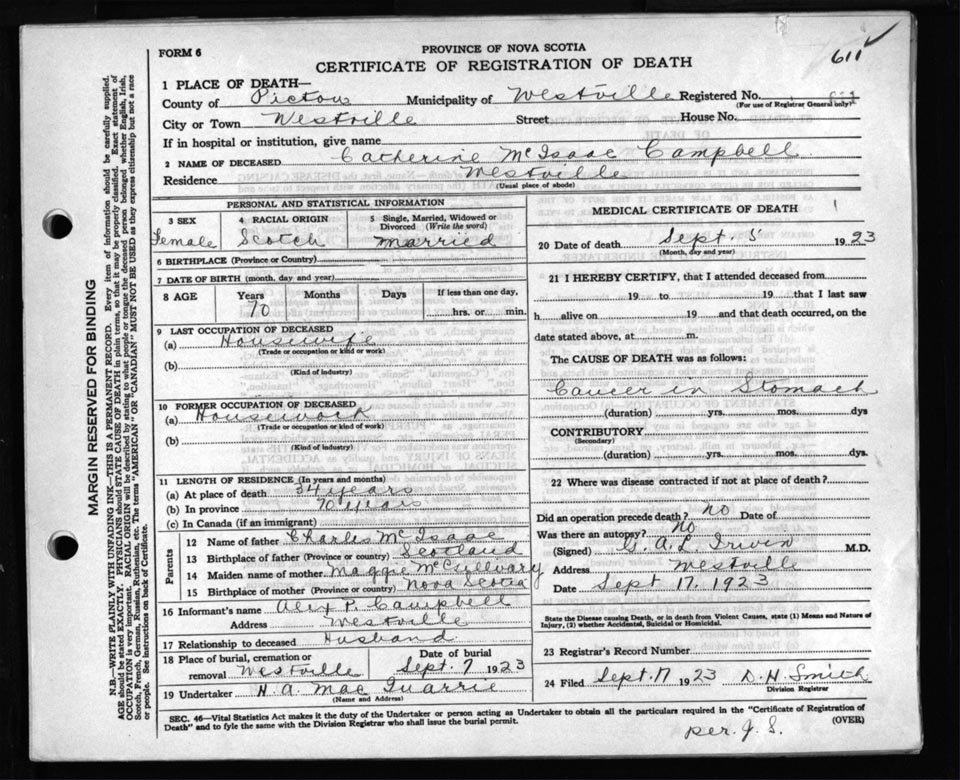 611
FORM 6
PROVINCE OF NOVA SCOTIA
CERTIFICATE OF REGISTRATION OF DEATH
1 PLACE OF DEATH—
County of Pictou Municipality of Westville Registered No.
(For use of Registrar General only)
City or Town Westville Street House No.
If in hospital or institution, give name
2 NAME OF DECEASED Catherine McIsaac Campbell
Residence Westville
(Usual place of abode)
PERSONAL AND STATISTICAL INFORMATION
3 SEX Female
4 RACIAL ORIGIN Scotch
5 Single, Married, Widowed or Divorced (Write the word) Married
6 BIRTHPLACE (Province or Country)
7 DATE OF BIRTH (month, day and year)
8 AGE Years Months Days If less than one day,
70 hrs. or min.
9 LAST OCCUPATION OF DECEASED
(a) Housewife
(Trade or occupation or kind or work)
(b)
(Kind of industry)
10 FORMER OCCUPATION OF DECEASED
(a) Housework
(Trade or occupation or kind of work)
(b)
(Kind of industry)
11 LENGTH OF RESIDENCE (In years and months)
(a) At place of death 34 years
(b) In province 70 years
(c) In Canada (if an immigrant)
Parents
12 Name of father Charles McIsaac
13 Birthplace of father (Province or country) Scotland
14 Maiden name of mother Maggie
15 Birthplace of mother (Province or country) Nova Scotia
16 Informant's name Alex P. Campbell
Address Westville
17 Relationship to deceased Husband
18 Place of burial, cremation or removal Westville
Date of burial Sept. 7 1923
19 Undertaker H. A. MacQuarrie
(Name and Address)
MEDICAL CERTIFICATE OF DEATH
20 Date of death Sept. 5 1923
(Month, day and year)
21 I HEREBY CERTIFY, that I attended deceased from
19 to 19 that I last saw
h alive on 19 and that death occurred, on the
date stated above, at m.
The CAUSE OF DEATH was as follows:
Cancer in Stomach
(duration) yrs. mos. dys
CONTRIBUTORY
(Secondary)
(duration) yrs. mos. dys.
22 Where was disease contracted if not at place of death?
Did an operation precede death? No Date of
Was there an autopsy? No
(Signed) G. A. L. Irwin M.D.
Address Westville
Date Sept 17. 1923
State the Disease causing Death, or in death from Violent Causes, state (1) Means and Nature of
Injury, (2) whether Accidental, Suicidal or Homicidal.
23 Registrar's Record Number
24 Filed Sept. 17 1923 D. H. Smith
Division Registrar
SEC. 46—Vital Statistics Act makes it the duty of the Undertaker or person acting as Undertaker to obtain all the particulars required in the "Certificate of Registration of
Death" and to fyle the same with the Division Registrar who shall issue the burial permit.
(OVER)
per. J. S.
MARGIN RESERVED FOR BINDING
N.B.—WRITE PLAINLY WITH UNFADING INK—THIS IS A PERMANENT RECORD. Every item of information should be carefully supplied.
AGE should be stated EXACTLY. PHYSICIANS should STATE CAUSE OF DEATH in plain terms, so that it may be properly classified. Exact statement of
OCCUPATION is very important. RACIAL ORIGIN will be described by stating to what people or tongue the deceased person belonged whether English, Irish,
Scotch, French, German, Russian, Ruthenian, etc. The terms "AMERICAN" OR "CANADIAN" MUST NOT BE USED as they express citizenship but not a race
or people. See instructions on back of Certificate.